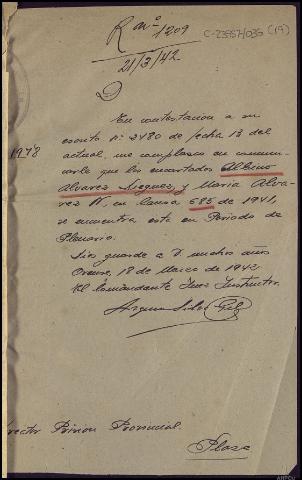 C-23557/035 (19)
R nº 1209
21/3/42
D
En contestacion a su
escrito nº 2480 de fecha 13 del
1978
actual, me complazco en comuni-
carle que los encartados Albino
Alvarez Nieguez, y Maria Alva-
rez N. en causa 585 de 1941,
se encuentra esta en Periodo de
Plenario.
Dios guarde a V. muchos años
Orense, 18 de Marzo de 1942
El Comandante Juez Instructor
Director Prision Provincial.
Plaza